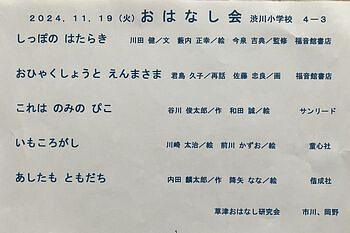 2024.11.19(火) おはなし会 渋川小学校 4-3
しっぽの はたらき 川田 健/文 藪内 正幸/絵 今泉 吉典/監修 福音館書店
おひゃくしょうと えんまさま 君島 久子/再話 佐藤 忠良/画 福音館書店
これは のみの ぴこ 谷川 俊太郎/作 和田 誠/絵 サンリード
いもころがし 川崎 大治/絵 前川 かずお/絵 童心社
あしたも ともだち 内田 麟太郎/作 降矢 なな/絵 偕成社
草津おはなし研究会 市川、岡野